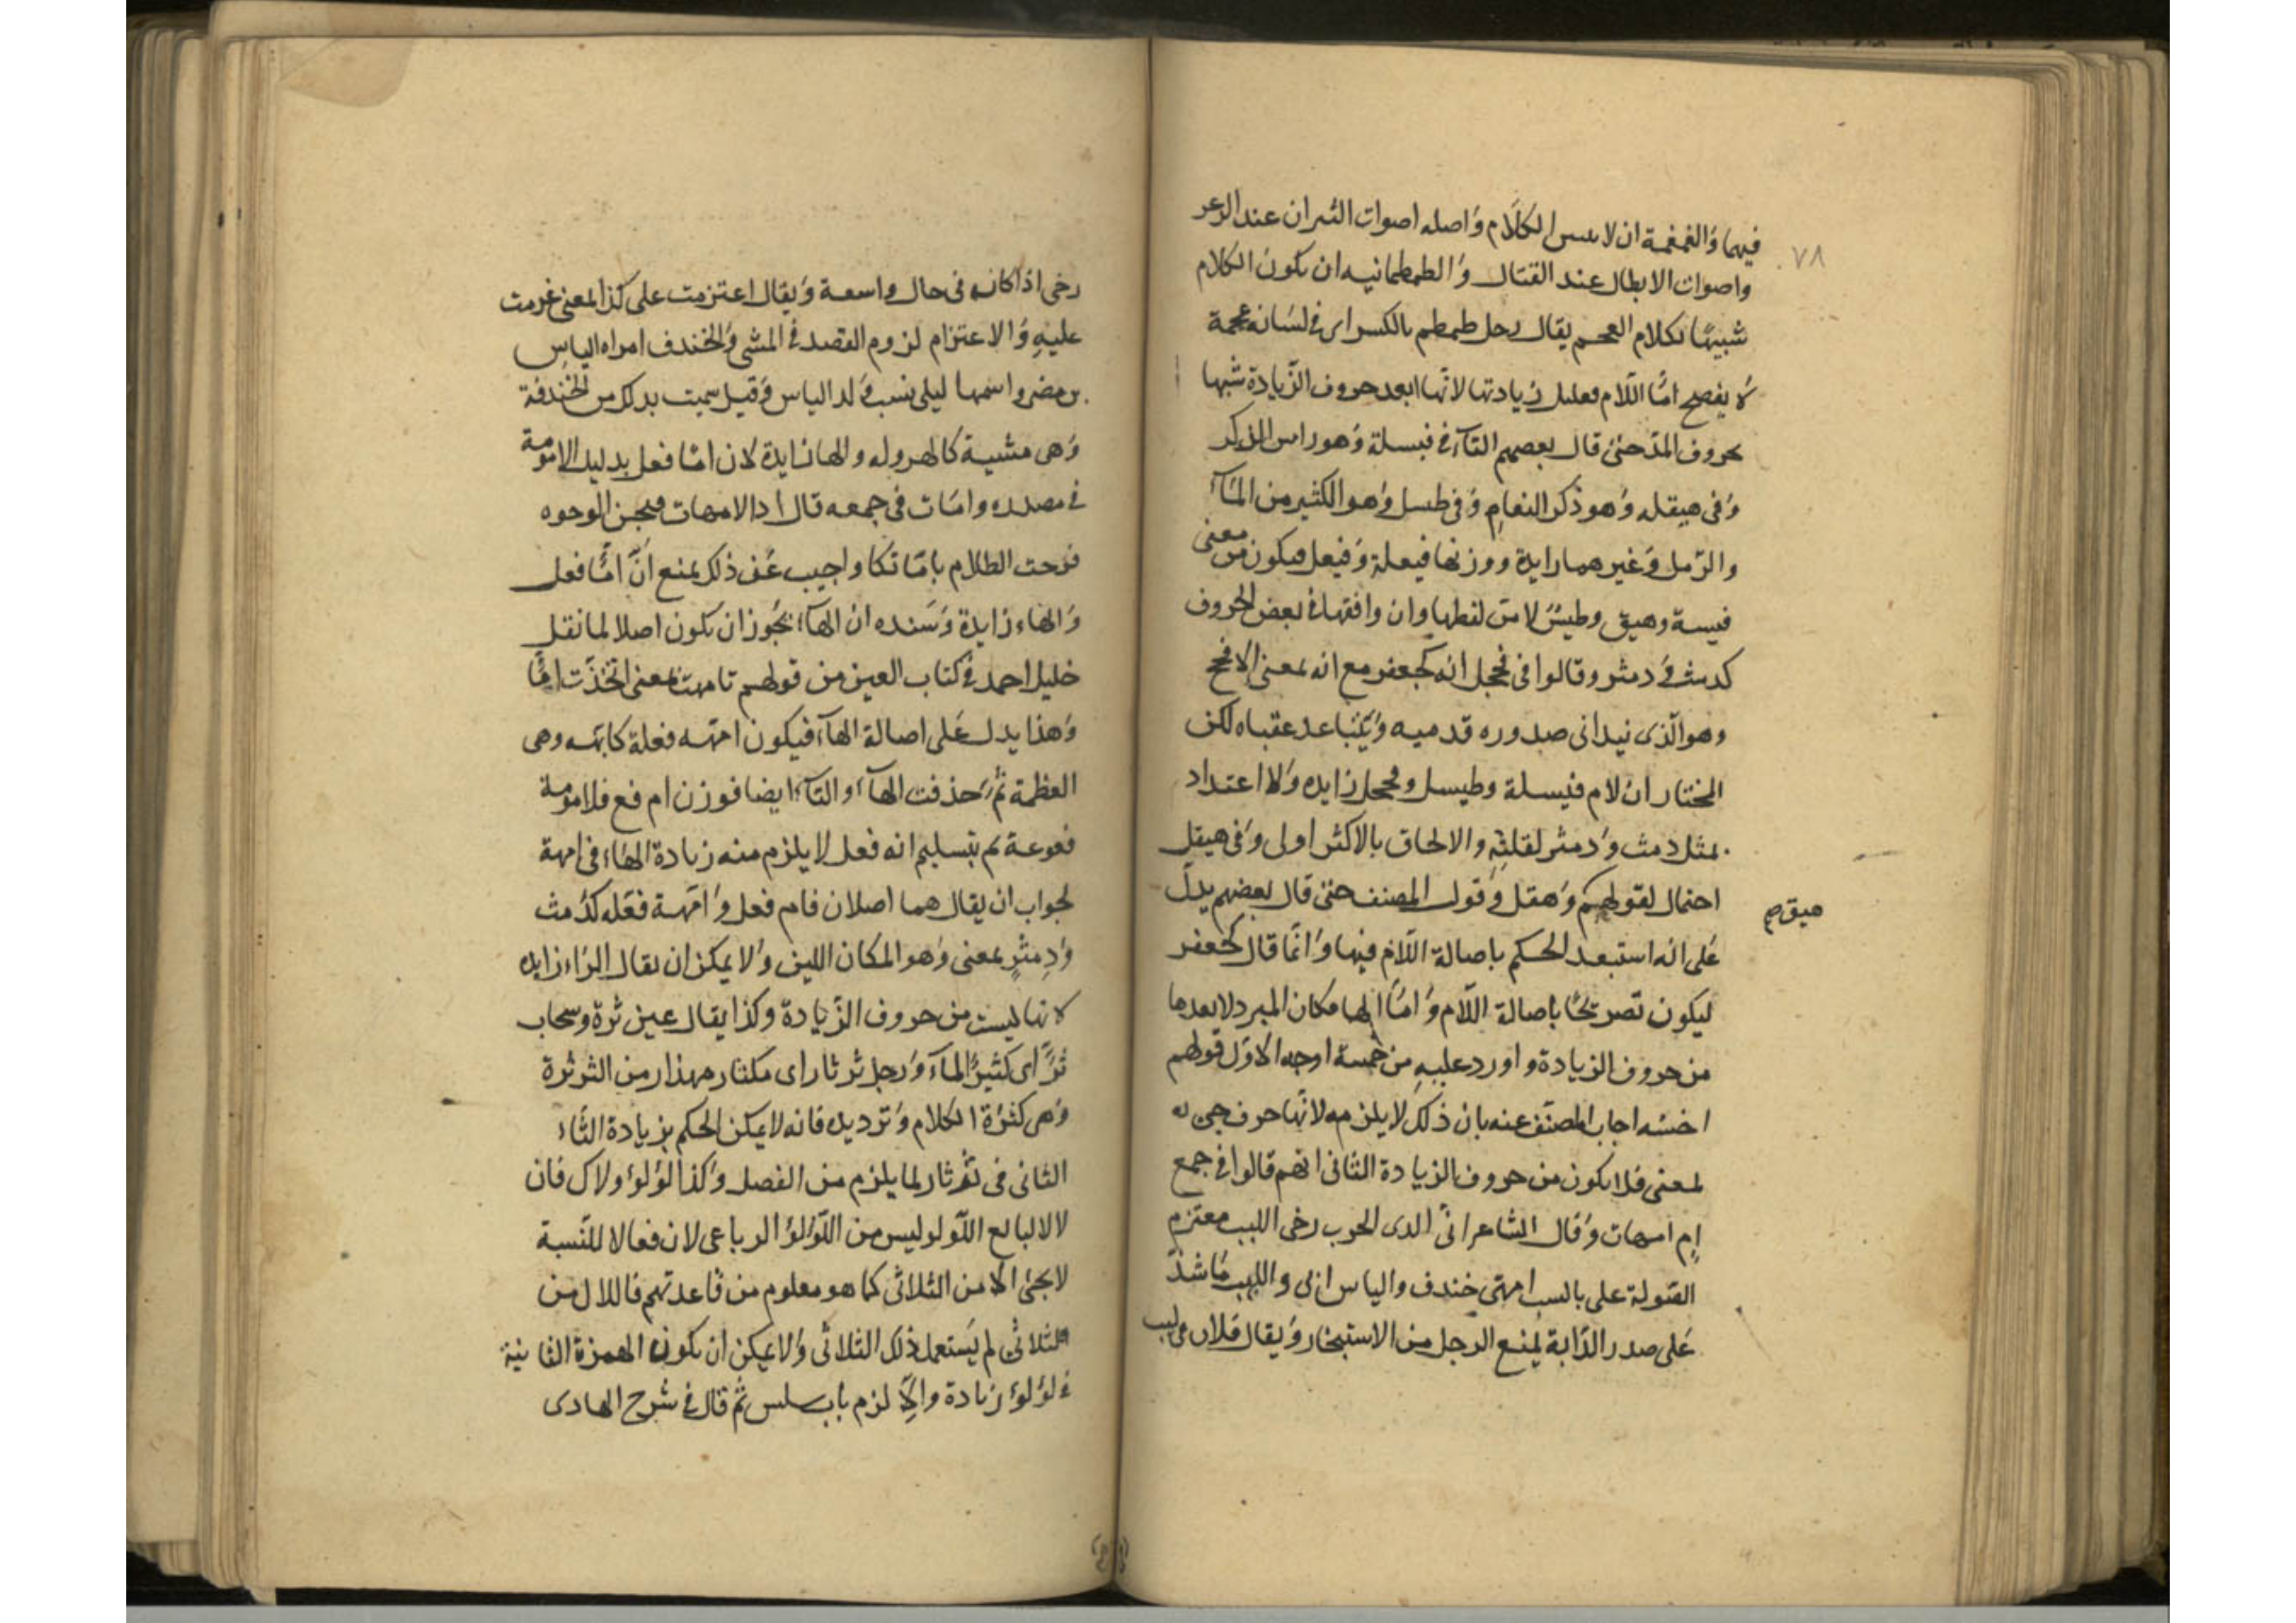 ٧٨
فيها وَالغمغمة ان لا الكلَام وَاصله اصوات الثيران عند الذعر
واصوات الابطال عند القتال وَالطمطمانيه ان يكون الكلام
شبيهًا بكلام العجم يقال رجل طمطم بالكسر اى فى لسَانه عجمة
لَا يفصح امّا اللّام فعليل زيادتها لانّها ابعد حروف الزّيادة شبها
بحروف المدّ حتى قال بعضهم التآء فى فيسلة وَهو راس الذكر
وَفى هيقله وَهو ذكر النعام وَفى طيسل وَهو الكثير من المآء
والرّمل وَغيرهما زايدة ووزنها فيعلة وَفيعل فيكون من معنى
فيسة وهيق وطيسٌ لا من لفظها وان وافقها فى بعض الحروف
كدمث فى دمثر وقالوا فى فحجل انه كجعفر مع انه بمعنى الافحج
وهو الّذى يتدانى صدوره قدميه وَيتبَاعد عقباه لكن
المختار ان لام فيسلة وطيسل وفحجل زايده وَلا اعتداد
بمثل دمث وَدمثر لقلتِه والالحاق بالاكثر اولى وَفى هيقل
احتمال لقولهم وَهقل وَقول المصنف حتى قال بعضهم يدلّ
هيق صح
عَلى انه استبعد الحكم باصالة اللّام فيها وَانّما قال كجعفر
ليكون تصريحًا باصالة اللّام وَامّا الها فكان المبرد لا يعدها
من حروف الزيادة و اورد عليهِ من خمسة اوجه الاوّل قولهم
اخشه اجاب المصنّف عنه بان ذلك لا يلزمه لانّها حرف جئ به
لمعنى فلا يكون من حروف الزيادة الثانى انهم قالوا فى جمع
اِم امهات وَقال الشاعر انّى لدى الحرب رخى اللبب معتزم
القولة على بالسب امهتى خندف والياس ابى واللبب مَا شدّ
عَلى صدر الدّابة يُمنع الرحل من الاستيخار وَيقال فلان فى لبب
رخى اذا كان فى حال واسعة وَيقال اعتزمت على كذا بمعنى عزمت
عليهِ وَالاعتزام لزوم القصد فى المشى وَالخندف امراه الياس
بن مضر واسمها ليلى نسب وَلد الياس وَقيل سميت بذلك من الخندفة
وَهى مشية كالهروله والها زايدة لان امّا فعل بدليل الامومة
فى مصدره وامّات فى جمعه قال اذا الامهات قبحن الوجوه
فرجت الظلام بامّاتكا واجيب عَن ذلك بمنع انّ امًّا فعل
وَالهاء زايدة وَسَنده ان الهآء يجُوز ان يكون اصلا لما نقل
خليل احمد فى كتاب العين من قولهم تامهت بمعنى اتخذّت امًّا
وَهذا يدل عَلى اصالة الهآء فيكون امّهه فعلة كابّهه وهى
العظمة ثمّ حذفت الهآء و التآء ايضا فوزن ام فع فلامومة
فعوعة ثم بتسليم انه فعل لا يلزم منه زيادة الهَاء فى امهة
لجواب ان يقال هما اصلان فام فعل وَامّهة فعّله كدَمث
وَدِمثْرٍ بمعنى وَهو المكان اللين وَلا يمكن ان يقال الرّاء زايده
لانها ليست من حروف الزّيادة وكذا يقال عين ثرة وسحاب
ثرّ اى كثيرُ المآء وَرجل ثرثار اى مكثار مهذار من الثرثرة
وَهى كثرَة الكلام وَترديده فانه لا يمكن الحكم بزيادة الثّاء
الثانى فى ثرثار لما يلزم من الفصل وَكذا لؤلؤ ولاٰل فان
لالا لبائع اللّؤلؤ ليس من اللّؤلؤ الرباعى لان فعالا للنّسبة
لا يجئ الّا من الثلاثى كما هو معلوم من قاعدتهم فاللال من
الثلاثى لم يَستعمل ذلك الثلاثى وَلا يمكن ان يكون الهمزة الثانية
فى لؤلؤ زيادة والّا لزم باب سلس ثمّ قال فى شرح الهادى